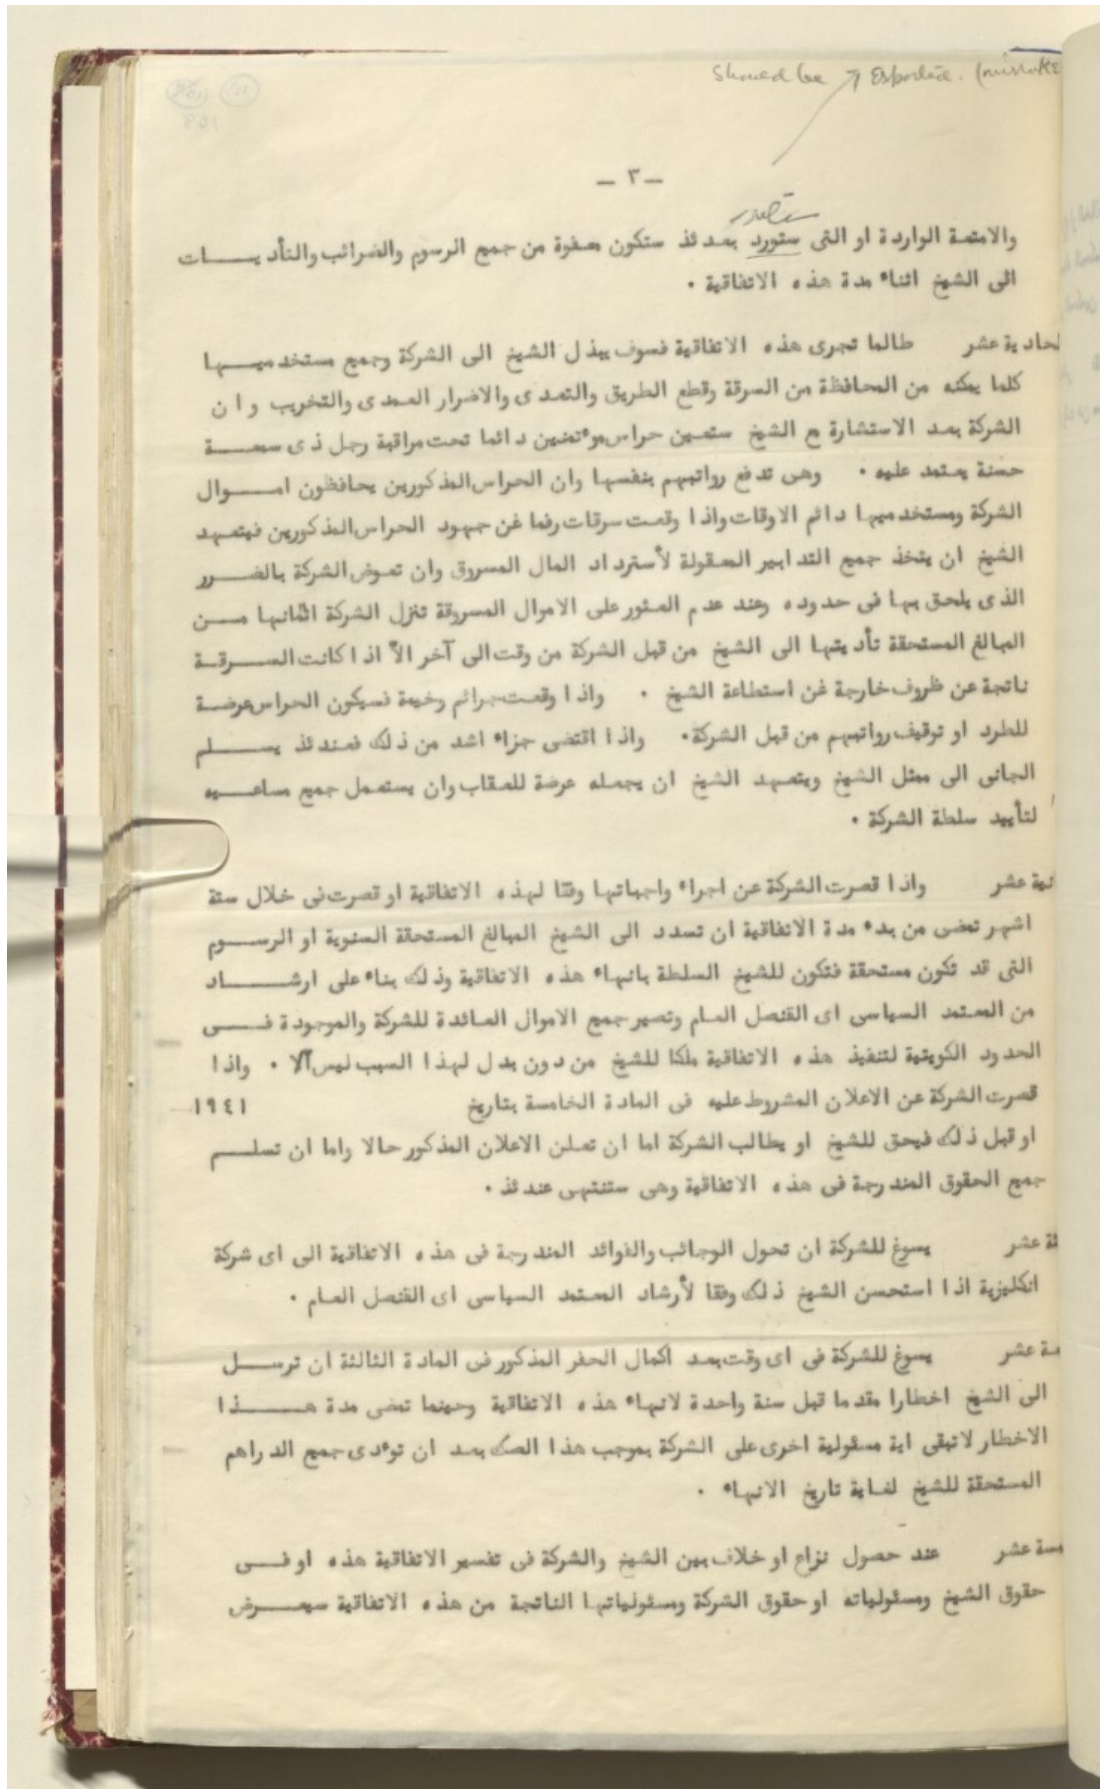 Should be Exported. (mistake
— ٣ —
ستصدر
والامتعة الواردة او التى ستورد بعدئذ ستكون معفوة من جميع الرسوم والضرائب والتأديــــات
الى الشيخ اثناء مدة هذه الاتفاقية .
لحادية عشر طالما تجرى هذه الاتفاقية فسوف يبذل الشيخ الى الشركة وجميع مستخدميــــها
كلما يمكنه من المحافظة من السرقة وقطع الطريق والتعدى والاضرار العمدى والتخريب وان
الشركة بعد الاستشارة مع الشيخ ستعين حراس موءتمنين دائما تحت مراقبة رجل ذى سمعــــة
حسنة يعتمد عليه . وهى تدفع رواتبهم بنفسها وان الحراس المذكورين يحافظون امــــوال
الشركة ومستخدميها دائم الاوقات واذا وقعت سرقات رغما غن جهود الحراس المذكورين فيتعهد
الشيخ ان يتخذ جميع التدابير المعقولة لأسترداد المال المسروق وان تعوض الشركة بالضــرر
الذى يلحق بها فى حدوده وعند عدم العثور على الاموال المسروقة تنزل الشركة اثمانها مــــن
المبالغ المستحقة تأديتها الى الشيخ من قبل الشركة من وقت الى آخر الاّ اذا كانت الســرقــة
ناتجة عن ظروف خارجة غن استطاعة الشيخ . واذا وقعت جرائم وخيمة فسيكون الحراس عرضــة
للطرد او توقيف رواتبهم من قبل الشركة . واذا اقتضى جزاء اشد من ذلك فعندئذ يســــلم
الجانى الى ممثل الشيخ ويتعهد الشيخ ان يجعله عرضة للعقاب وان يستعمل جميع مساعــــيه
لتأييد سلطة الشركة .
نية عشر واذا قصرت الشركة عن اجراء واجباتها وفقا لهذه الاتفاقية او قصرت فى خلال ستة
اشهر تمضى من بدء مدة الاتفاقية ان تسدد الى الشيخ المبالغ المستحقة السنوية او الرســوم
التى قد تكون مستحقة فتكون للشيخ السلطة بانهاء هذه الاتفاقية وذلك بناء على ارشــــاد
من المعتمد السياسى اى القنصل العام وتصير جميع الاموال العائدة للشركة والموجودة فــــى
الحدود الكويتية لتنفيذ هذه الاتفاقية ملكا للشيخ من دون بدل لهذا السبب ليس الا . واذا
قصرت الشركة عن الاعلان المشروط عليه فى المادة الخامسة بتاريخ ١٩٤١
او قبل ذلك فيحق للشيخ او يطالب الشركة اما ان تعلن الاعلان المذكور حالا واما ان تسلــــم
جميع الحقوق المندرجة فى هذه الاتفاقية وهى ستنتهى عندئذ .
ثة عشر يسوغ للشركة ان تحول الوجائب والفوائد المندرجة فى هذه الاتفاقية الى اى شركة
انكليزية اذا استحسن الشيخ ذلك وفقا لأرشاد المعتمد السياسى اى القنصل العام .
عة عشر يسوغ للشركة فى اى وقت بعد اكمال الحفر المذكور فى المادة الثالثة ان ترســــل
الى الشيخ اخطارا مقدما قبل سنة واحدة لانهاء هذه الاتفاقية وحينما تمضى مدة هــــذا
الاخطار لا تبقى اية مسئولية اخرى على الشركة بموجب هذا الصك بعد ان توءدى جميع الدراهم
المستحقة للشيخ لغاية تاريخ الانهاء .
مسة عشر عند حصول نزاع او خلاف بين الشيخ والشركة فى تفسير الاتفاقية هذه او فــــى
حقوق الشيخ ومسئولياته او حقوق الشركة ومسئولياتها الناتجة من هذه الاتفاقية سيعــــرض